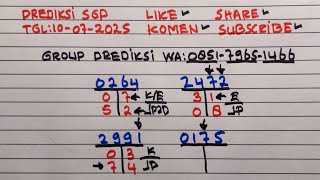 PREDIKSI SGP LIKE SHARE
TGL:10-07-2025 KOMEN SUBSCRIBE
GROUP PREDIKSI WA:0851-7965-1466
0264 2472
0 7 K/E 3 1 E
5 2 JP2D 0 8 JP
2991 0175
0 3 K
7 4 JP